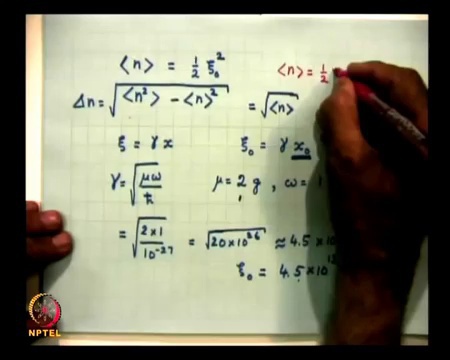 ⟨n⟩ = 1/2 ξ₀²
⟨n⟩ = 1/2
Δn = √(⟨n²⟩ − ⟨n⟩²) = √⟨n⟩
ξ = γ x
ξ₀ = γ x₀
γ = √(μω/ħ)
μ = 2 g, ω = 1
= √(2×1/10⁻²⁷) = √(20×10²⁶) ≈ 4.5×10
ξ₀ = 4.5×10
NPTEL